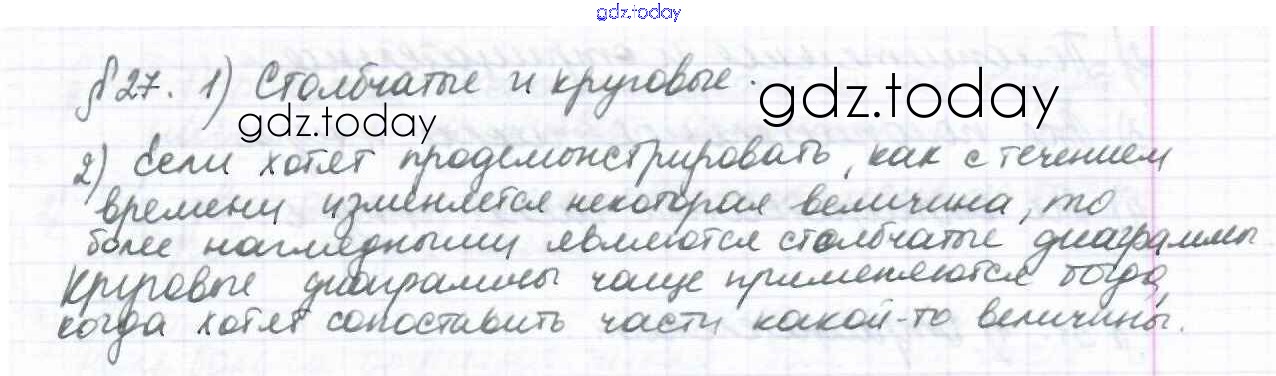 gdz.today
§ 27. 1) Столбчатые и круговые.
gdz.today
gdz.today
2) Если хотят продемонстрировать, как с течением
времени изменяется некоторая величина, то
более наглядными являются столбчатые диаграммы
Круговые диаграммы чаще применяются тогда,
когда хотят сопоставить части какой-то величины.